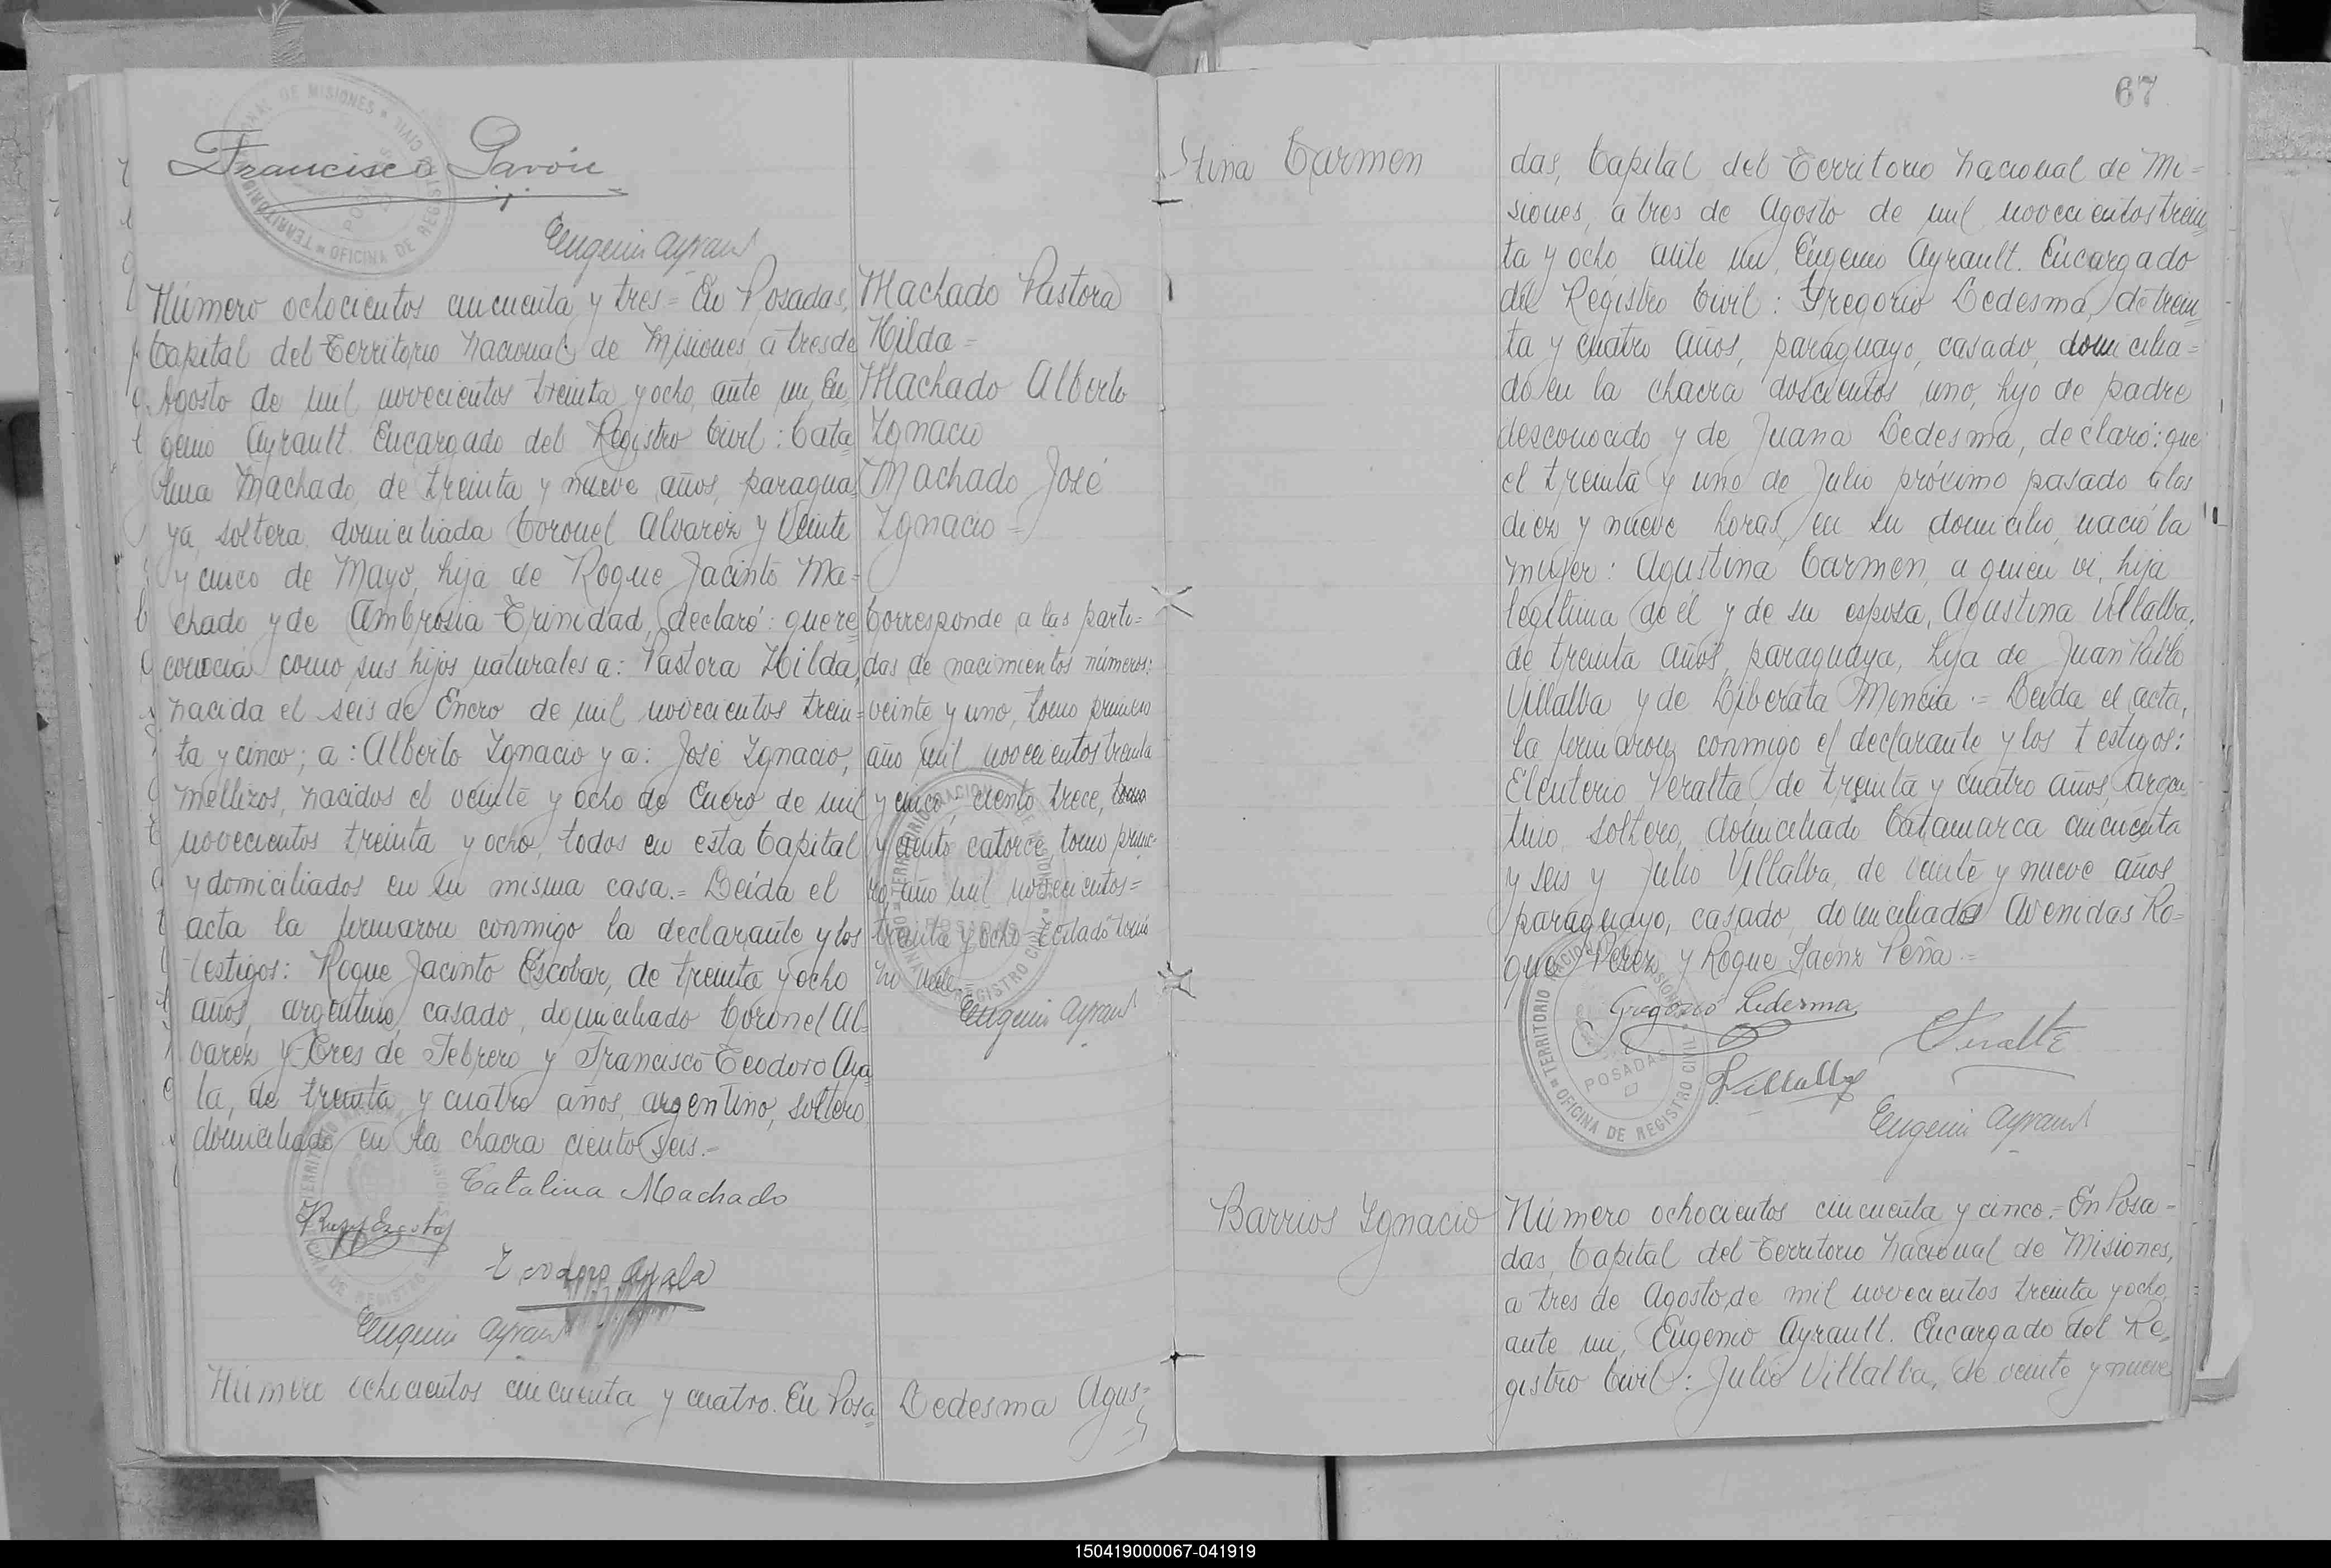 Francisco Pavón
Eugenio Ayrault
Número ochocientos cincuenta y tres = En Posadas,
Capital del Territorio Nacional de Misiones, a tres de
Agosto de mil novecientos treinta y ocho, ante mi, Eu
genio Ayrault. Encargado del Registro Civil: Cata
lina Machado, de treinta y nueve años, paragua
ya, soltera, domiciliada Coronel Alvarez y Veinte
y cinco de Mayo, hija de Roque Jacinto Ma=
chado y de Ambrosia Trinidad, declaró: que re
conocia como sus hijos naturales a: Pastora Hilda,
nacida el seis de Enero de mil novecientos trein=
ta y cinco; a: Alberto Ignacio y a: José Ignacio,
mellizos, nacidos el veinte y ocho de Enero de mil
novecientos treinta y ocho, todos en esta Capital
y domiciliados en su misma casa.= Leída el
acta la firmaron conmigo la declarante y los
testigos: Roque Jacinto Escobar, de treinta y ocho
años, argentino, casado, domiciliado Coronel Al=
varez y Tres de Febrero y Francisco Teodoro Aya
la, de treinta y cuatro años, argentino, soltero
domiciliado en la chacra ciento seis.=
Catalina Machado
Teodoro Ayala
Eugenio Ayrault
Número ochocientos cincuenta y cuatro. En Posa=
Machado Pastora
Hilda =
Machado Alberto
Ignacio
Machado José
Ignacio =
Corresponde a las parti=
das de nacimientos números:
veinte y uno, tomo primero
año mil novecientos treinta
y cinco; ciento trece, tomo
y ciento catorce, tomo prime-
ro año mil novecientos=
treinta y ocho. Testado: tomo
no vale.=
Eugenio Ayrault
Ledesma Agus=
67
tina Carmen
das, Capital del Territorio Nacional de Mi=
siones, a tres de Agosto de mil novecientos trein
ta y ocho, ante mi, Eugenio Ayrault. Encargado
del Registro Civil: Gregorio Ledesma, de trein
ta y cuatro años, paraguayo, casado, domicilia=
do en la chacra doscientos uno, hijo de padre
desconocido y de Juana Ledesma, declaró: que
el treinta y uno de Julio próximo pasado a las
diez y nueve horas, en su domicilio, nació la
mujer: Agustina Carmen, a quien vi, hija
legítima de él y de su esposa, Agustina Villalba,
de treinta años, paraguaya, hija de Juan Pablo
Villalba y de Liberata Mencia.= Leída el acta,
la firmaron conmigo el declarante y los testigos:
Eleuterio Peralta, de treinta y cuatro años, argen
tino, soltero, domiciliado Catamarca cincuenta
y seis y Julio Villalba, de veinte y nueve años
paraguayo, casado, domiciliado Avenidas Ro=
que Perez y Roque Saenz Peña.=
Gregorio Ledesma
Peralta
Villalba
Eugenio Ayrault
Barrios Ignacio
Número ochocientos cincuenta y cinco.= En Posa=
das, Capital del Territorio Nacional de Misiones,
a tres de Agosto, de mil novecientos treinta y ocho,
ante mi, Eugenio Ayrault. Encargado del Re=
gistro Civil: Julio Villalba, de veinte y nueve
TERRITORIO NACIONAL DE MISIONES
OFICINA DE REGISTRO CIVIL
POSADAS
150419000067-041919